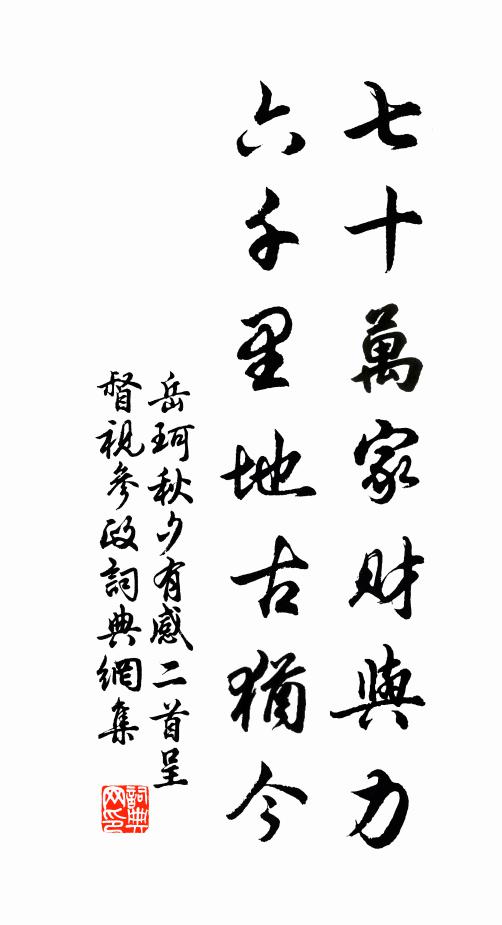 七十萬家財與力
六千里地古猶今
岳珂秋夕有感二首呈
督視參政詞典網集
詞典
网印